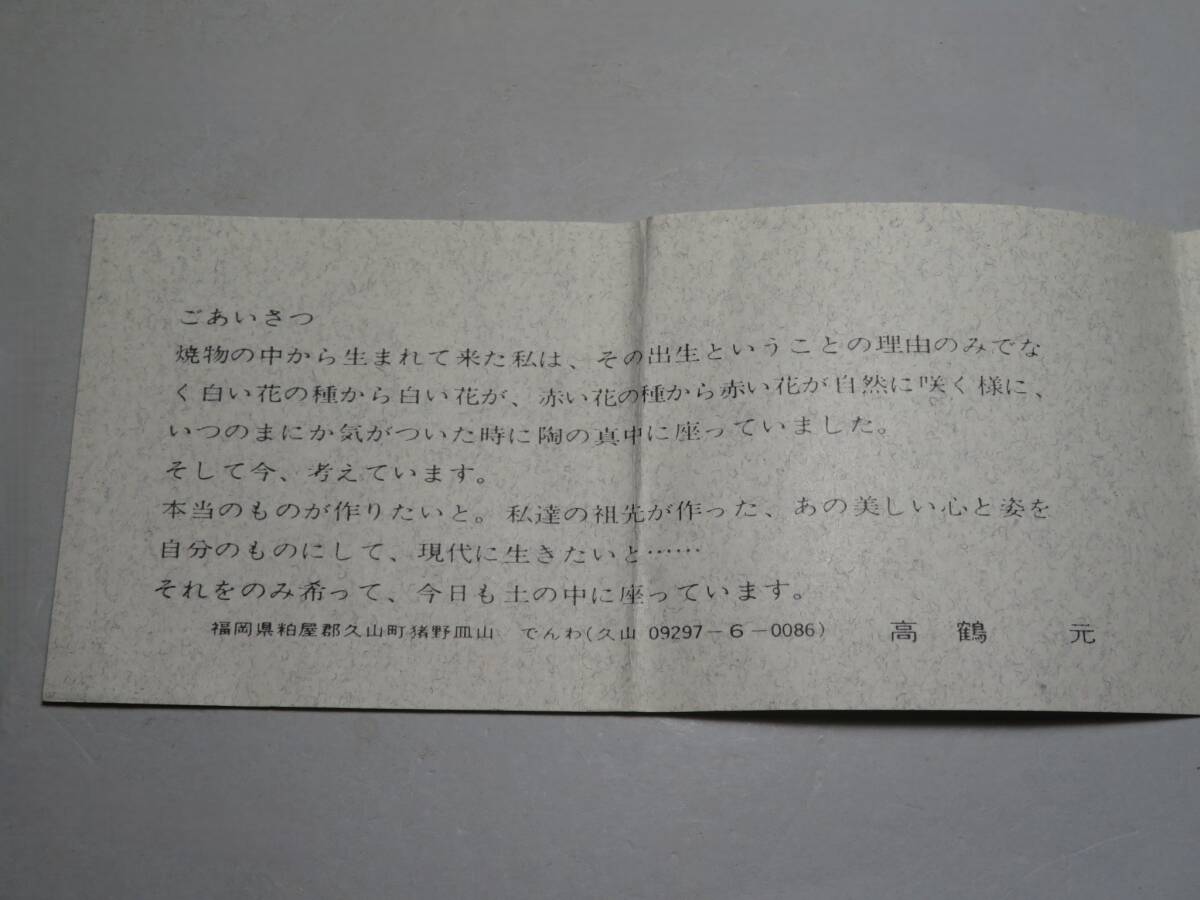 ごあいさつ
焼物の中から生まれて来た私は、その出生ということの理由のみでな
く白い花の種から白い花が、赤い花の種から赤い花が自然に咲く様に、
いつのまにか気がついた時に陶の真中に座っていました。
そして今、考えています。
本当のものが作りたいと。私達の祖先が作った、あの美しい心と姿を
自分のものにして、現代に生きたいと……
それをのみ希って、今日も土の中に座っています。
福岡県粕屋郡久山町猪野皿山 でんわ(久山 09297-6-0086) 高鶴 元